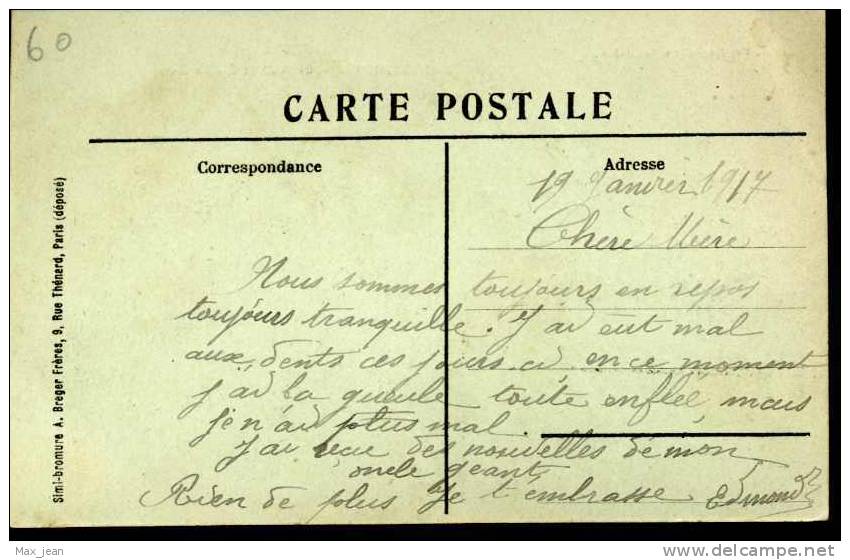 60
CARTE POSTALE
Correspondance
Adresse
19 Janvier 1917
Chère Mère
Nous sommes toujours en repos
toujours tranquille. J'ai eut mal
aux dents ces jours ci, en ce moment
j'ai la gueule toute enflée, mais
je n'ai plus mal.
J'ai reçu des nouvelles de mon
oncle géant
Rien de plus Je t'embrasse Edmond
Simi-bromure A. Breger Frères, 9, Rue Thénard, Paris (déposé)
Max_jean
delcampe.net